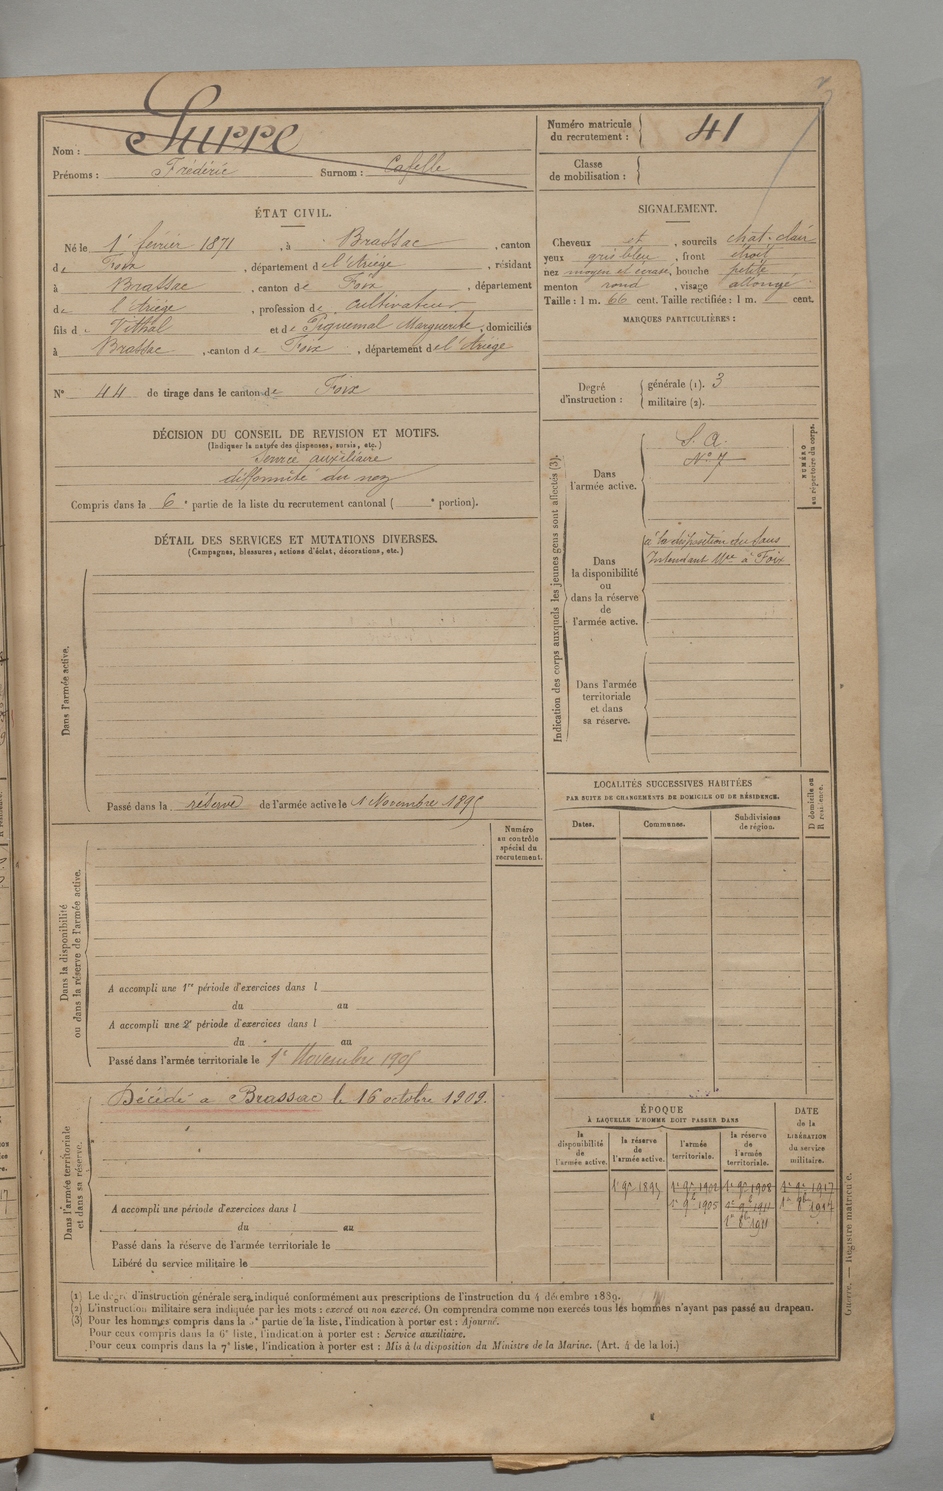 Nom : Surre
Prénoms : Frédéric Surnom : Cafelle
Numéro matricule du recrutement : 41
Classe de mobilisation :
ÉTAT CIVIL.
Né le 1er février 1871, à Brassac, canton
de Foix, département de l'Ariège, résidant
à Brassac, canton de Foix, département
de l'Ariège, profession de cultivateur
fils de Vithal et de Piquemal Marguerite, domiciliés
à Brassac, canton de Foix, département de l'Ariège
SIGNALEMENT.
Cheveux et, sourcils chat. clair
yeux gris bleu, front étroit
nez moyen et écrasé, bouche petite
menton rond, visage allongé
Taille : 1 m. 66 cent. Taille rectifiée : 1 m. cent.
MARQUES PARTICULIÈRES :
N° 44 de tirage dans le canton de Foix
Degré d'instruction : générale (1). 3
militaire (2).
DÉCISION DU CONSEIL DE REVISION ET MOTIFS.
(Indiquer la nature des dispenses, sursis, etc.)
Service auxiliaire
difformité du nez
Compris dans la 6e partie de la liste du recrutement cantonal ( e portion).
DÉTAIL DES SERVICES ET MUTATIONS DIVERSES.
(Campagnes, blessures, actions d'éclat, décorations, etc.)
Dans l'armée active.
Passé dans la réserve de l'armée active le 1 Novembre 1895
Indication des corps auxquels les jeunes gens sont affectés (3).
NUMÉRO au répertoire du corps.
Dans l'armée active.
S. A.
N° 7
Dans la disponibilité ou dans la réserve de l'armée active.
à la disposition du Sous
Intendant Mre à Foix
Dans l'armée territoriale et dans sa réserve.
LOCALITÉS SUCCESSIVES HABITÉES
PAR SUITE DE CHANGEMENTS DE DOMICILE OU DE RÉSIDENCE.
Dates. Communes. Subdivisions de région.
D domicile ou R résidence.
Numéro au contrôle spécial du recrutement.
Dans la disponibilité ou dans la réserve de l'armée active.
A accompli une 1re période d'exercices dans l
du au
A accompli une 2e période d'exercices dans l
du au
Passé dans l'armée territoriale le 1er Novembre 1905
Dans l'armée territoriale et dans sa réserve.
Décédé à Brassac le 16 octobre 1909.
A accompli une période d'exercices dans l
du au
Passé dans la réserve de l'armée territoriale le
Libéré du service militaire le
ÉPOQUE
À LAQUELLE L'HOMME DOIT PASSER DANS
la disponibilité de l'armée active.
la réserve de l'armée active.
l'armée territoriale.
la réserve de l'armée territoriale.
DATE de la LIBÉRATION du service militaire.
1er 9bre 1895 1er 9bre 1902 1er 9bre 1908 1er 9bre 1917
1er 9bre 1905 1er 9bre 1911 1er 8bre 1917
1er 8bre 1911
(1) Le degré d'instruction générale sera indiqué conformément aux prescriptions de l'instruction du 4 décembre 1889.
(2) L'instruction militaire sera indiquée par les mots : exercé ou non exercé. On comprendra comme non exercés tous les hommes n'ayant pas passé au drapeau.
(3) Pour les hommes compris dans la 5e partie de la liste, l'indication à porter est : Ajourné.
Pour ceux compris dans la 6e liste, l'indication à porter est : Service auxiliaire.
Pour ceux compris dans la 7e liste, l'indication à porter est : Mis à la disposition du Ministre de la Marine. (Art. 4 de la loi.)
Guerre. — Registre matricule.